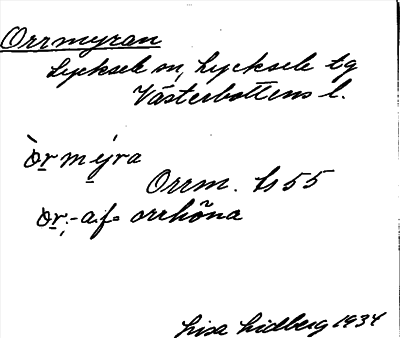 Orrmyran
Lycksele sn, Lycksele tg
Västerbottens l.
òrmýra
Orrm. ts 55
òr:- af= orrhöna
Lisa Lidberg 1934